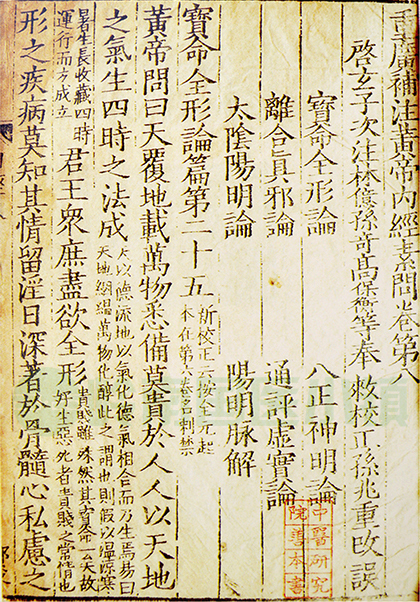 重廣補注黃帝內經素問卷第八
啓玄子次注林億孫奇高保衡等奉敕校正孫兆重改誤
寶命全形論　八正神明論
離合眞邪論　通評虛實論
太陰陽明論　陽明脉解
寶命全形論篇第二十五
新校正云按全元起
本在第六卷名刺禁
黃帝問曰天覆地載萬物悉備莫貴於人人以天地
之氣生四時之法成
天以德流地以氣化德氣相合而乃生焉易曰
天地絪縕萬物化醇此之謂也則假以溫凉寒
暑生長收藏四時
運行而方成立
君王眾庶盡欲全形
貴賤雖殊然其寶命一矣故
好生惡死者貴賤之常情也
形之疾病莫知其情留淫日深著於骨髓心私慮之
中醫研究
院善本書